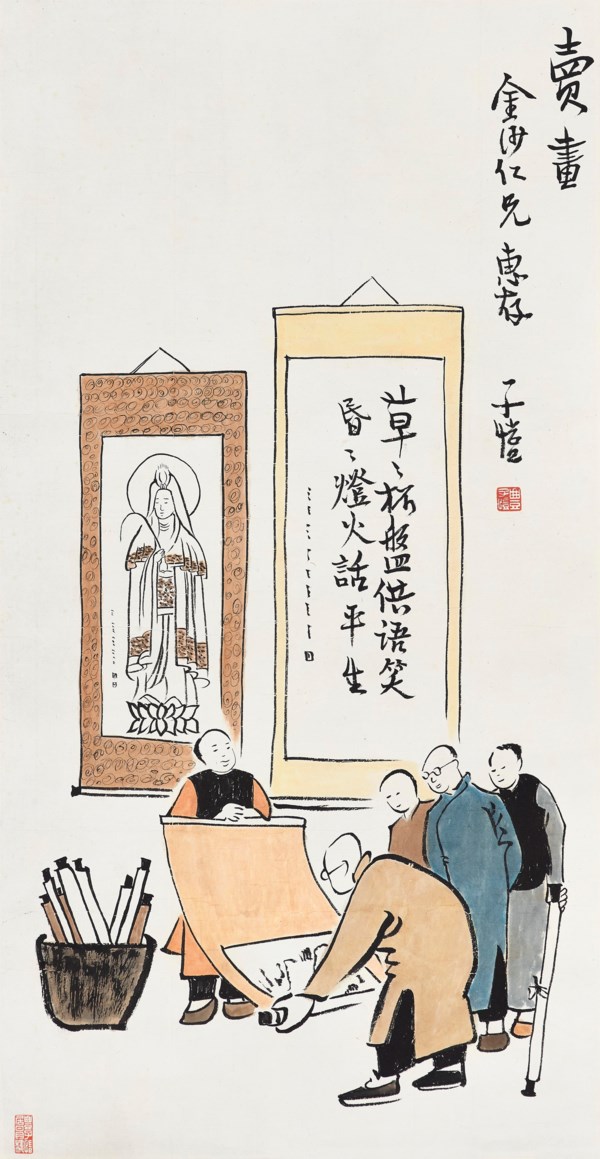 賣畫
金沙仁兄惠存
子愷
草〻杯盤供語笑
昏〻燈火話平生